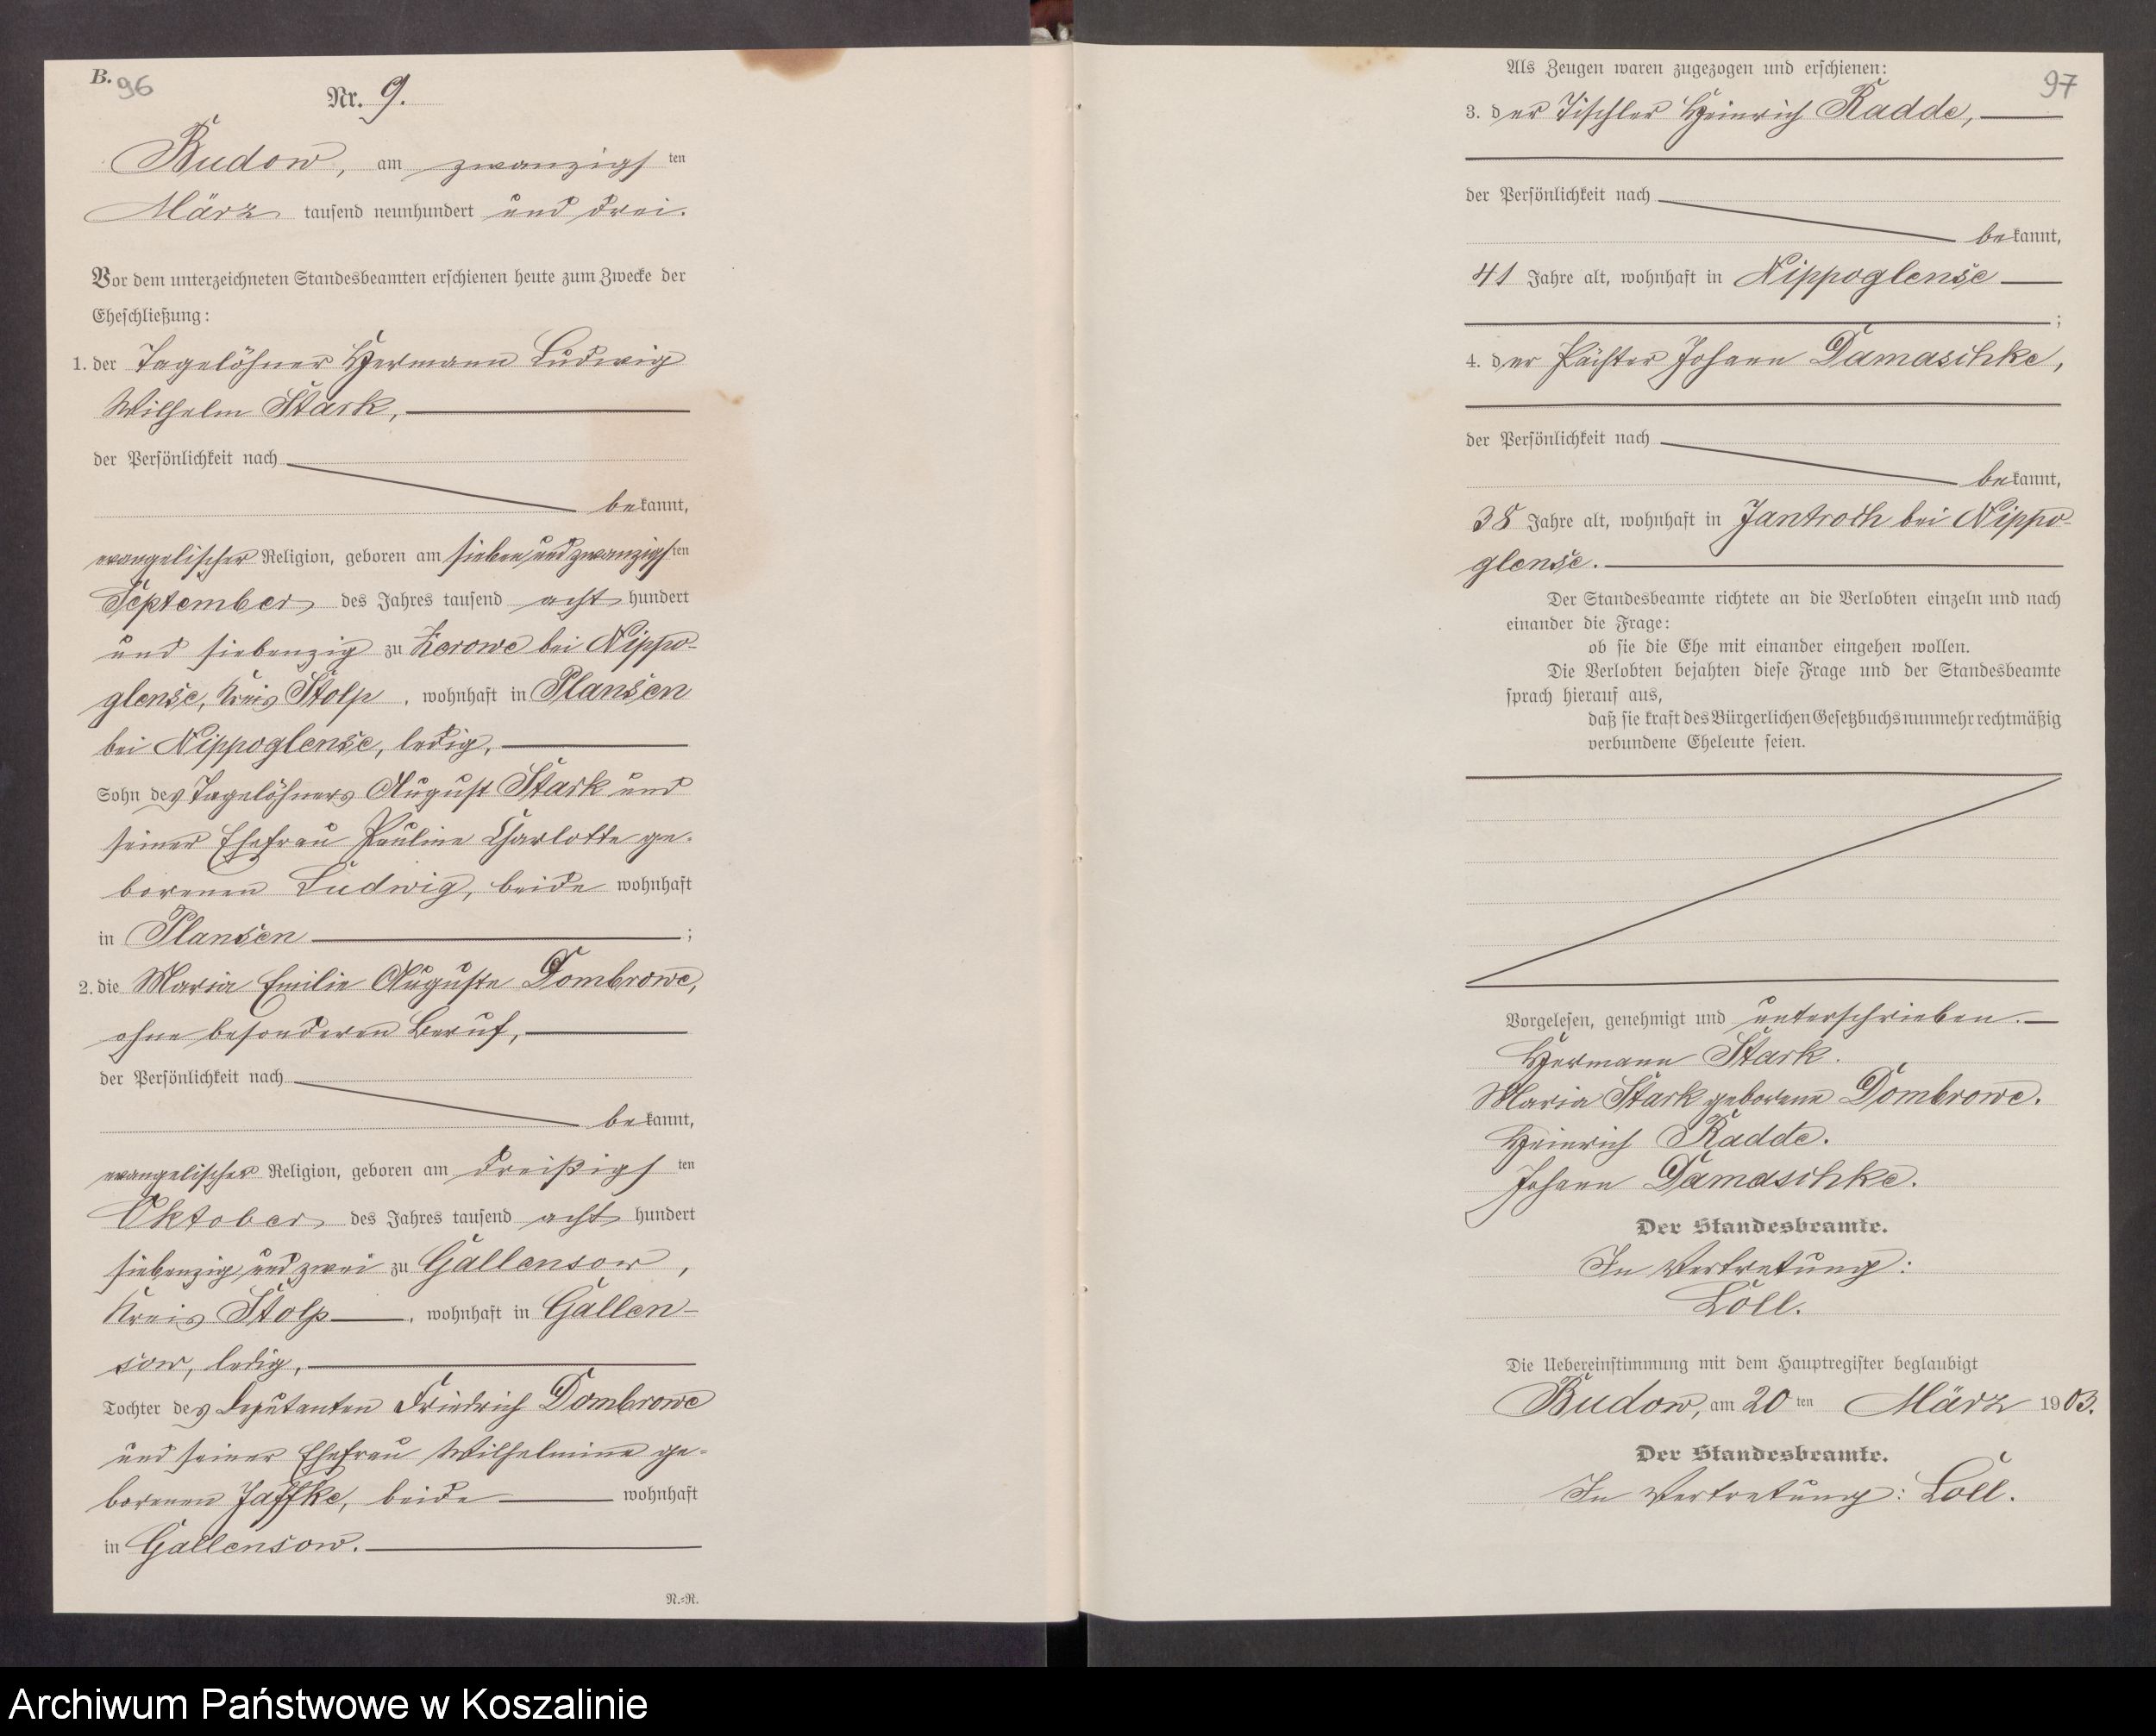 B.
96
Nr. 9.
Budow, am zwanzigsten
März tausend neunhundert und drei.
Vor dem unterzeichneten Standesbeamten erschienen heute zum Zwecke der
Eheschließung:
1. der Tagelöhner Hermann Ludwig
Wilhelm Stark,
der Persönlichkeit nach
bekannt,
evangelischer Religion, geboren am siebenundzwanzigsten
September des Jahres tausend acht hundert
und siebenzig zu Karowe bei Nippo-
glense, Kreis Stolp, wohnhaft in Plansen
bei Nippoglense, ledig,
Sohn des Tagelöhners August Stark und
seiner Ehefrau Pauline Charlotte ge-
borenen Ludwig, beide wohnhaft
in Plansen ;
2. die Maria Emilie Auguste Dombrowe,
ohne besonderen Beruf,
der Persönlichkeit nach
bekannt,
evangelischer Religion, geboren am dreißigsten
Oktober des Jahres tausend acht hundert
siebenzig und zwei zu Gallensow,
Kreis Stolp, wohnhaft in Gallen-
sow, ledig,
Tochter des Deputanten Friedrich Dombrowe
und seiner Ehefrau Wilhelmine ge-
borenen Jaffke, beide wohnhaft
in Gallensow.
N.-R.
97
Als Zeugen waren zugezogen und erschienen:
3. der Tischler Heinrich Radde,
der Persönlichkeit nach
bekannt,
41 Jahre alt, wohnhaft in Nippoglense
;
4. der Pächter Johann Damaschke,
der Persönlichkeit nach
bekannt,
38 Jahre alt, wohnhaft in Jantroth bei Nippo-
glense.
Der Standesbeamte richtete an die Verlobten einzeln und nach
einander die Frage:
ob sie die Ehe mit einander eingehen wollen.
Die Verlobten bejahten diese Frage und der Standesbeamte
sprach hierauf aus,
daß sie kraft des Bürgerlichen Gesetzbuchs nunmehr rechtmäßig
verbundene Eheleute seien.
Vorgelesen, genehmigt und unterschrieben.
Hermann Stark.
Maria Stark geborene Dombrowe.
Heinrich Radde.
Johann Damaschke.
Der Standesbeamte.
In Vertretung:
Löll.
Die Uebereinstimmung mit dem Hauptregister beglaubigt
Budow, am 20ten März 1903.
Der Standesbeamte.
In Vertretung: Löll.
Archiwum Państwowe w Koszalinie